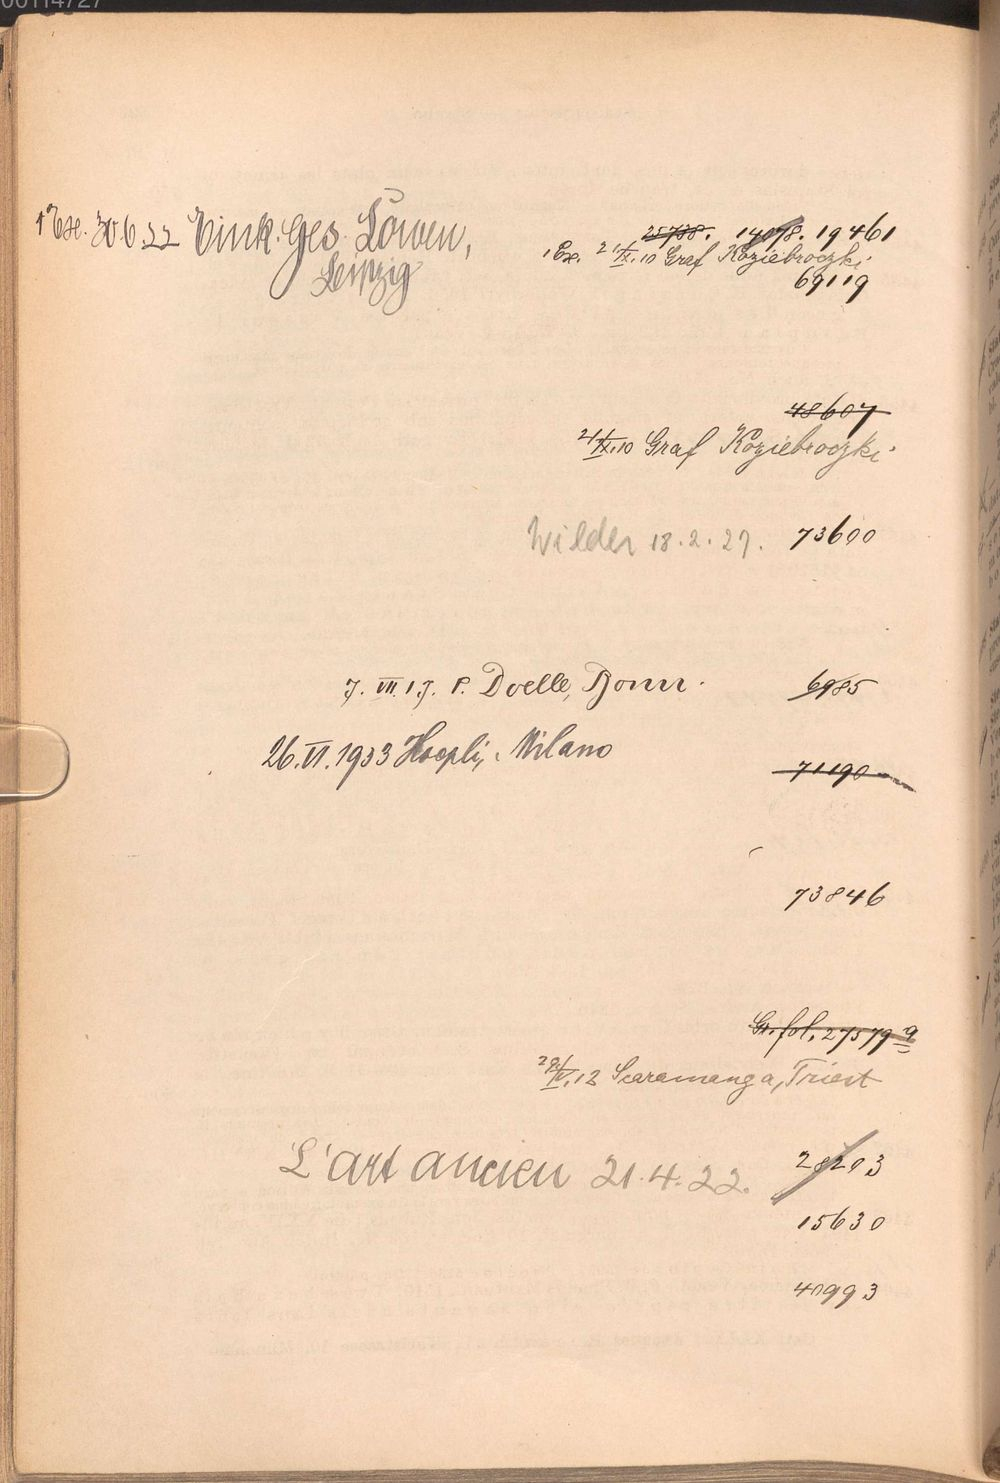 00114727
1 Ex. 30.6.22 Eink. Ges. Löwen,
Leipzig
25788. 14078. 19461
1 Ex. 21/IX.10 Graf Koziebrodzki
69119
48607
21/IX.10 Graf Koziebrodzki
Wilder 18.2.27. 73600
7. VII.17. P. Doelle, Bonn. 6985
26.VI.1933 Hoepli, Milano
71190
73846
Gr. fol. 27579 a
29/IV.12 Scaramanga, Triest
L'art ancien 21.4.22. 28203
15630
40993